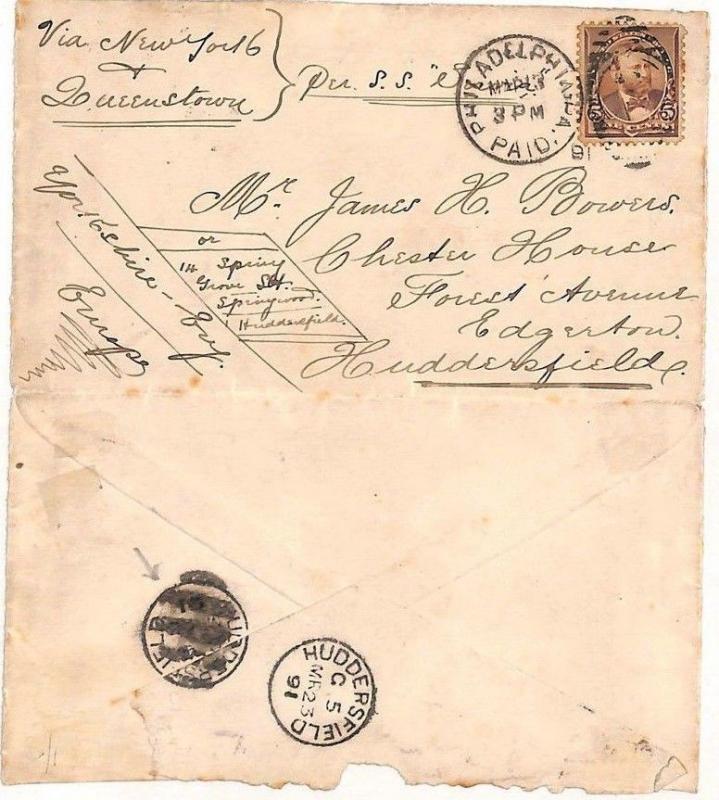 Via New York
+
Queenstown
Per S.S.
PHILADELPHIA, PA.
3 PM
PAID.
5 5
Mr. James H. Bowers.
Chester House
Forest Avenue
Edgerton.
Huddersfield.
or
14 Spring
Grove St.
Springwood.
Huddersfield.
Yorkshire - Eng.
Europe
HUDDERSFIELD
HUDDERSFIELD
C 5
MR 23
91